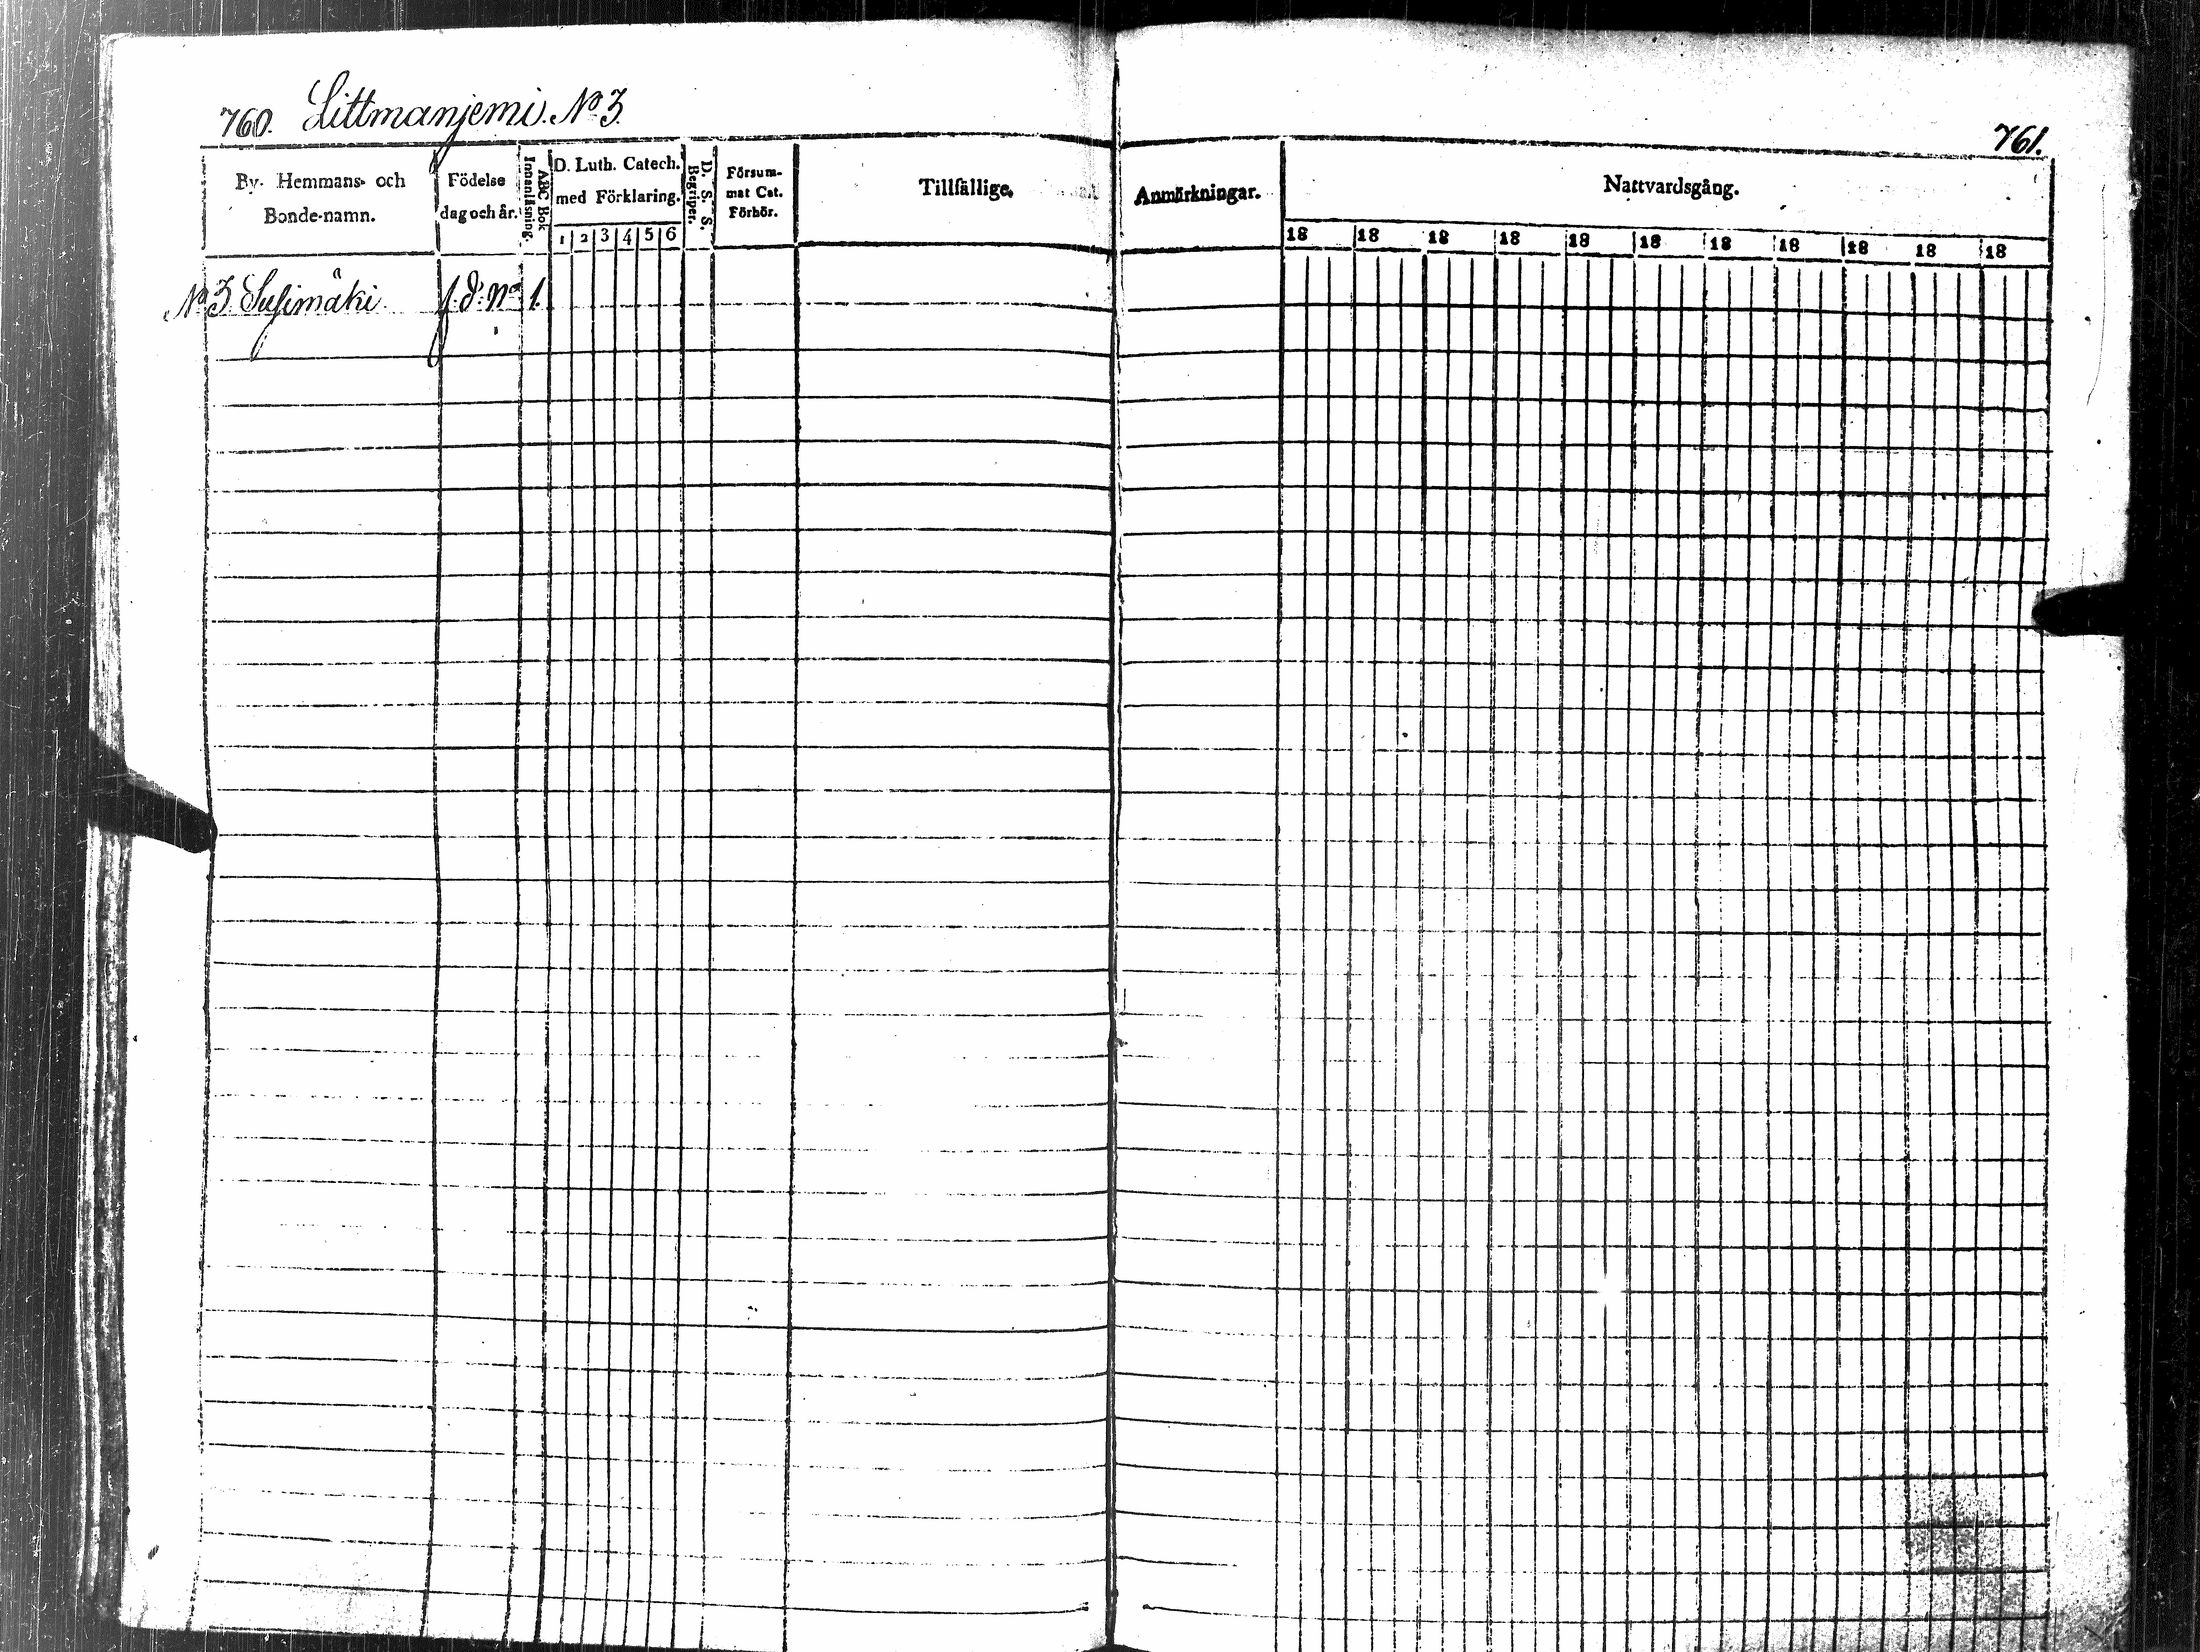 760. Littmanjemi. No 3.
761.
By- Hemmans- och Bonde-namn.
Födelse dag och år.
ABC Bok Innanläsning.
D. Luth. Catech. med Förklaring.
1 2 3 4 5 6
D. S. S. Begriper.
Försum- mat Cat. Förhör.
Tillfällige
Anmärkningar.
Nattvardsgång.
18 18 18 18 18 18 18 18 18 18 18
No 3. Susimäki. f. d. No 1.